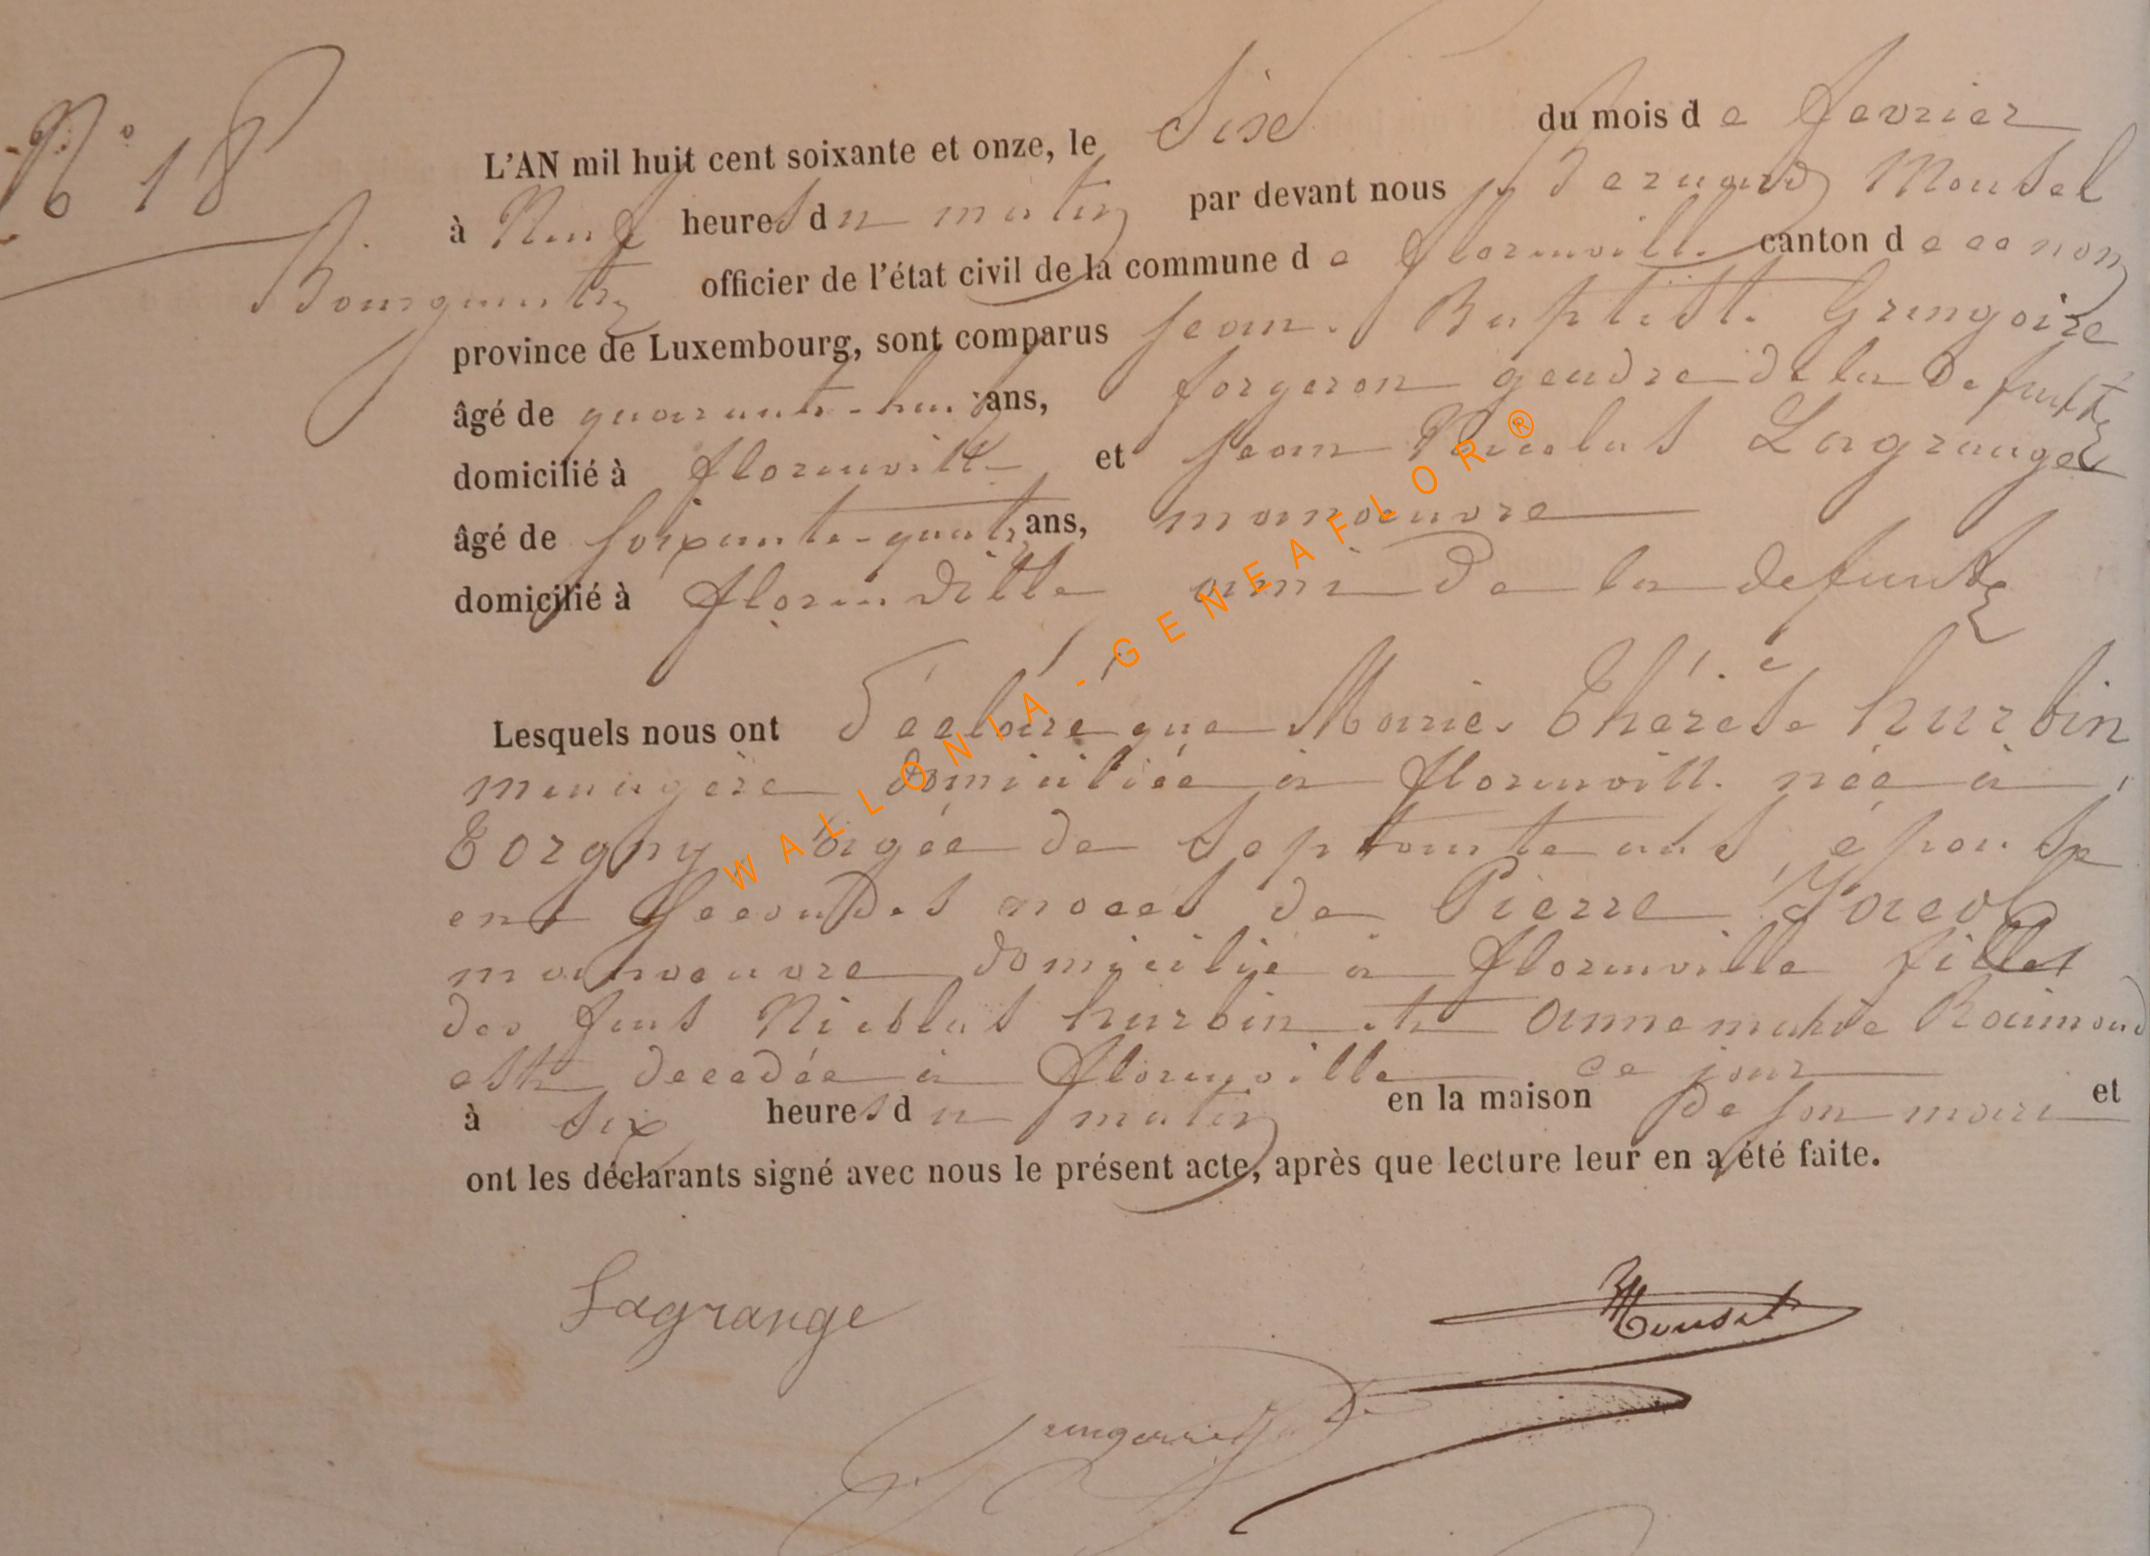 N° 18
L'AN mil huit cent soixante et onze, le Sise du mois de fevrier
à Neuf heures du matin par devant nous J Bernard Mousel
Bourgmestre officier de l'état civil de la commune de florenville canton de ce nom
province de Luxembourg, sont comparus jean. Baptiste Grengoire
âgé de quarante-huit ans, forgeron gendre de la defunte
domicilié à florenville et jean Nicolas Lagrange
âgé de soixante-quatre ans, manoeuvre
domicilié à florenville ami de la defunte
Lesquels nous ont déclaré que Marie Thérèse hurbin
menagère domiciliée à florenville née à
Torgny agée de septante ans, épouse
en secondes noces de Pierre
manoeuvre domicilié à florenville fille
des feus Nicolas hurbin et anne marie Raimond
est decedée à florenville ce jour
à six heures du matin en la maison de son mari et
ont les déclarants signé avec nous le présent acte, après que lecture leur en a été faite.
Lagrange
Mousel
WALLONIA-GENEAFLOR®